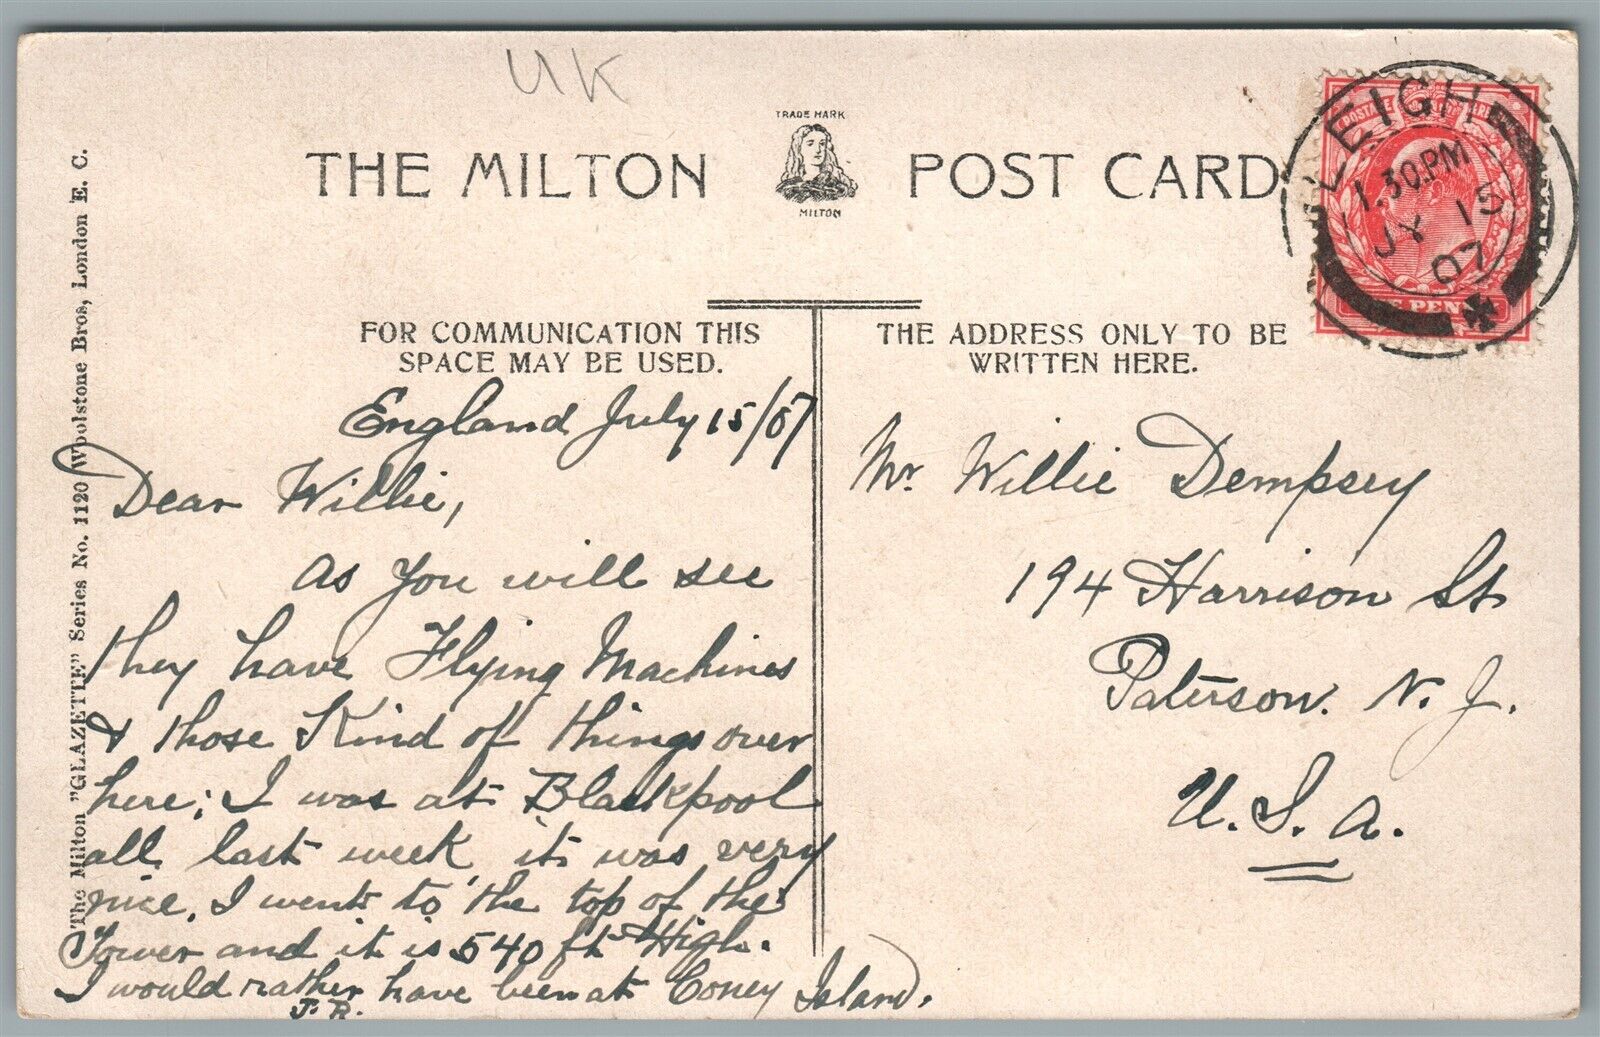 UK
TRADE MARK
THE MILTON POST CARD
MILTON
LEIGH
1.30.PM
JY 15
07
FOR COMMUNICATION THIS
SPACE MAY BE USED.
THE ADDRESS ONLY TO BE
WRITTEN HERE.
The Milton "GLAZETTE" Series No. 1120 Woolstone Bros, London E. C.
England July 15/07
Dear Willie,
as you will see
they have Flying Machines
& those Kind of things over
here; I was at Blackpool
all last week it was very
nice. I went to the top of the
Tower and it is 540 ft High.
I would rather have been at Coney Island.
J. R.
Mr. Willie Dempsey
194 Harrison St
Paterson. N. J.
U. S. A.